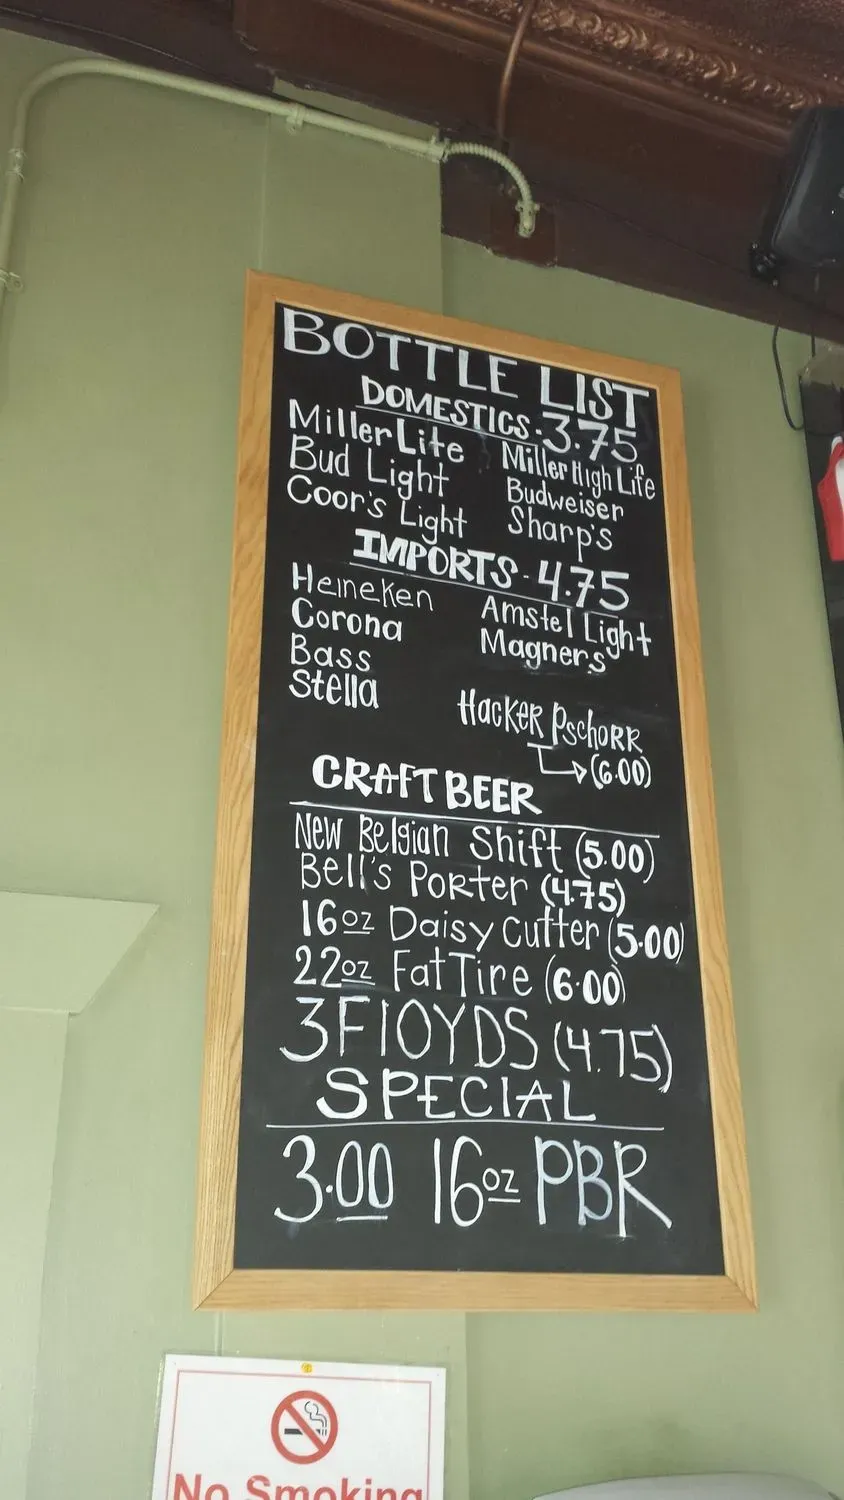 BOTTLE LIST
DOMESTICS - 3.75
Miller Lite Miller High Life
Bud Light Budweiser
Coor's Light Sharp's
IMPORTS - 4.75
Heineken Amstel Light
Corona Magners
Bass
Stella Hacker Pschorr
(6.00)
CRAFT BEER
New Belgian Shift (5.00)
Bell's Porter (4.75)
16oz Daisy Cutter (5.00)
22oz Fat Tire (6.00)
3 FlOYDS (4.75)
SPECIAL
3.00 16oz PBR
No Smoking